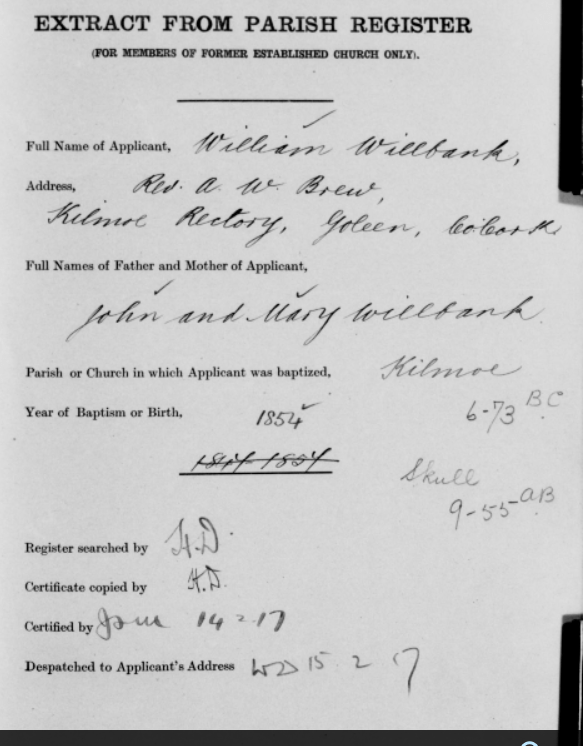 EXTRACT FROM PARISH REGISTER
(FOR MEMBERS OF FORMER ESTABLISHED CHURCH ONLY).
Full Name of Applicant, William Willbank,
Address, Rev. A. W. Brew,
Kilmoe Rectory, Goleen, Co Cork
Full Names of Father and Mother of Applicant,
John and Mary Willbank
Parish or Church in which Applicant was baptized, Kilmoe
Year of Baptism or Birth, 1854
6-73 BC
Skull
9-55 AB
Register searched by H.D.
Certificate copied by H.D.
Certified by 14-2-17
Despatched to Applicant's Address 15 2 17